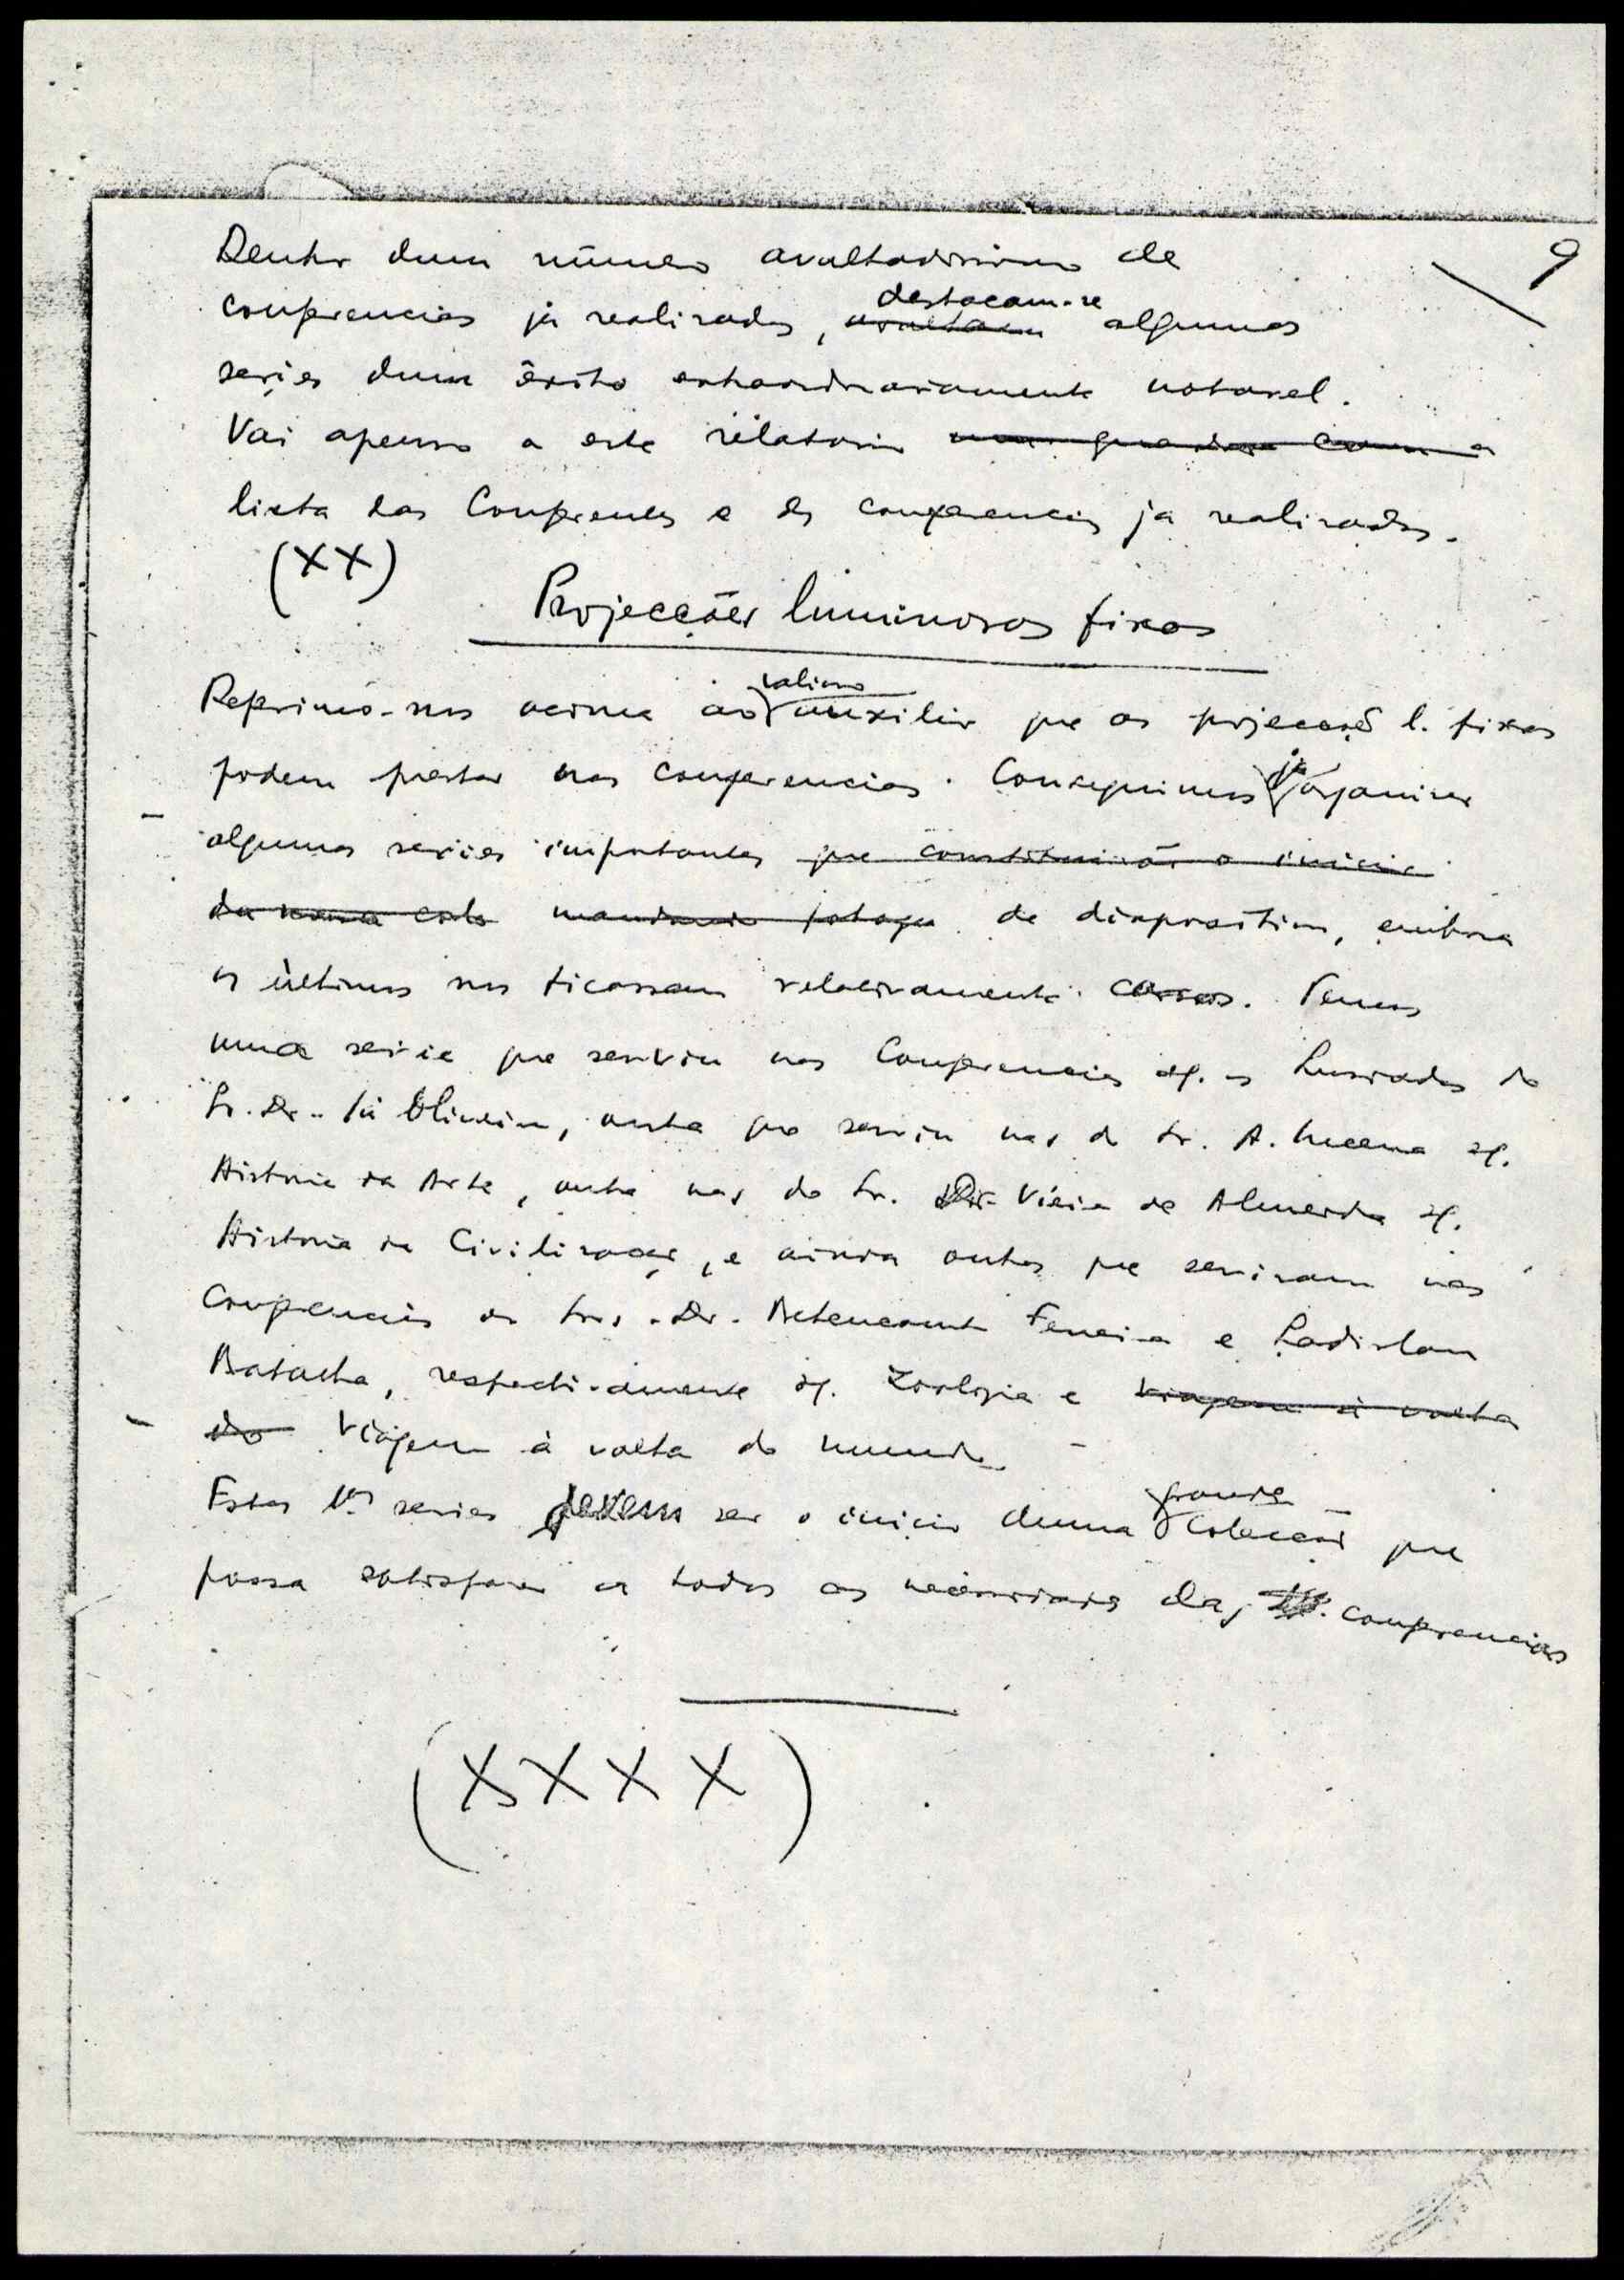 9
Dentro dum número avultadissimo de
conferencias já realizadas, avultam destacam-se algumas
series dum êxito extraordinariamente notavel.
Vai apenso a este relatorio a
lista dos Conferentes e das conferencias ja realizadas.
(XX)
Projecções luminosas fixas
Referimo-nos acima ao valioso auxilio que as projecções l. fixas
podem prestar nas conferencias. Conseguimos já organizar
algumas series importantes que constituirão o inicio
da nossa de diapositivos, embora
os últimos nos ficassem relativamente caros. Temos
uma serie que serviu nas Conferencias sf. os Lusiadas do
Sr. Dr. Sá Oliveira, outra que serviu nas do Sr. A. Lucena sf.
Historia da Arte, outra nas do Sr. Dr. Vieira de Almeida sf.
Historia da Civilização, e ainda outras que serviram nas
Conferencias dos Srs. Dr. Betencourt Ferreira e Ladislau
Batalha, respectivamente sf. Zoologia e viagem à volta
do Viagem à volta do mundo.
Estas 1as series devem ser o inicio duma grande colecção que
possa satisfazer a todas as necessidades das conferencias
(XXXX)